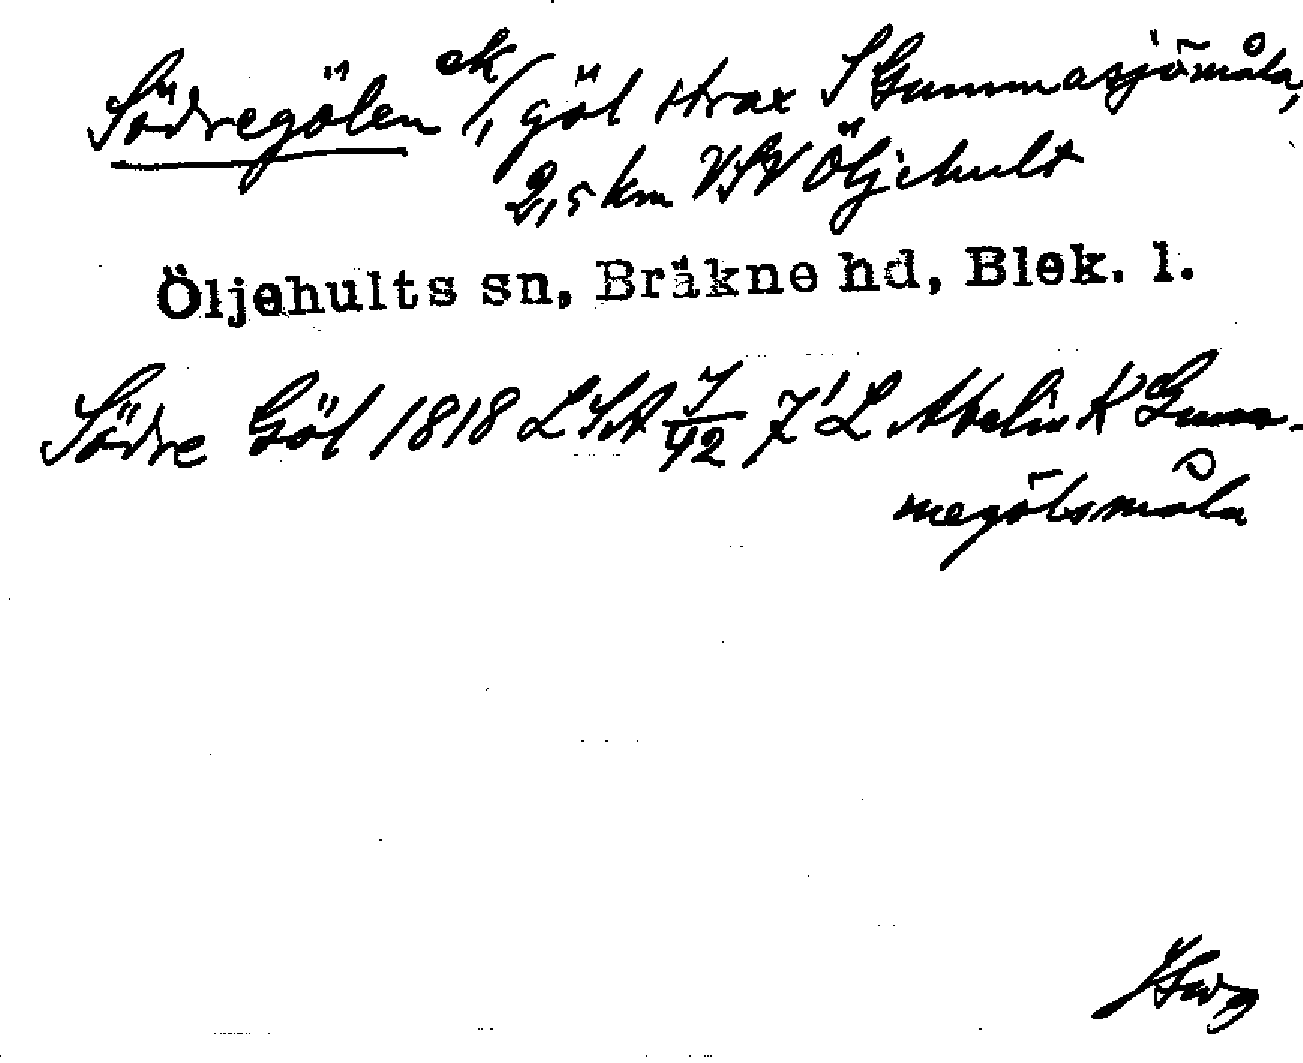 Södregölen ek/, göl strax S Gummasjömåla,
2,5 km VSV Öljehult
Öljehults sn, Bräkne hd, Blek. l.
Södre Göl 1818 LSA 7/42 L Abelin K Gum-
megölsmåla